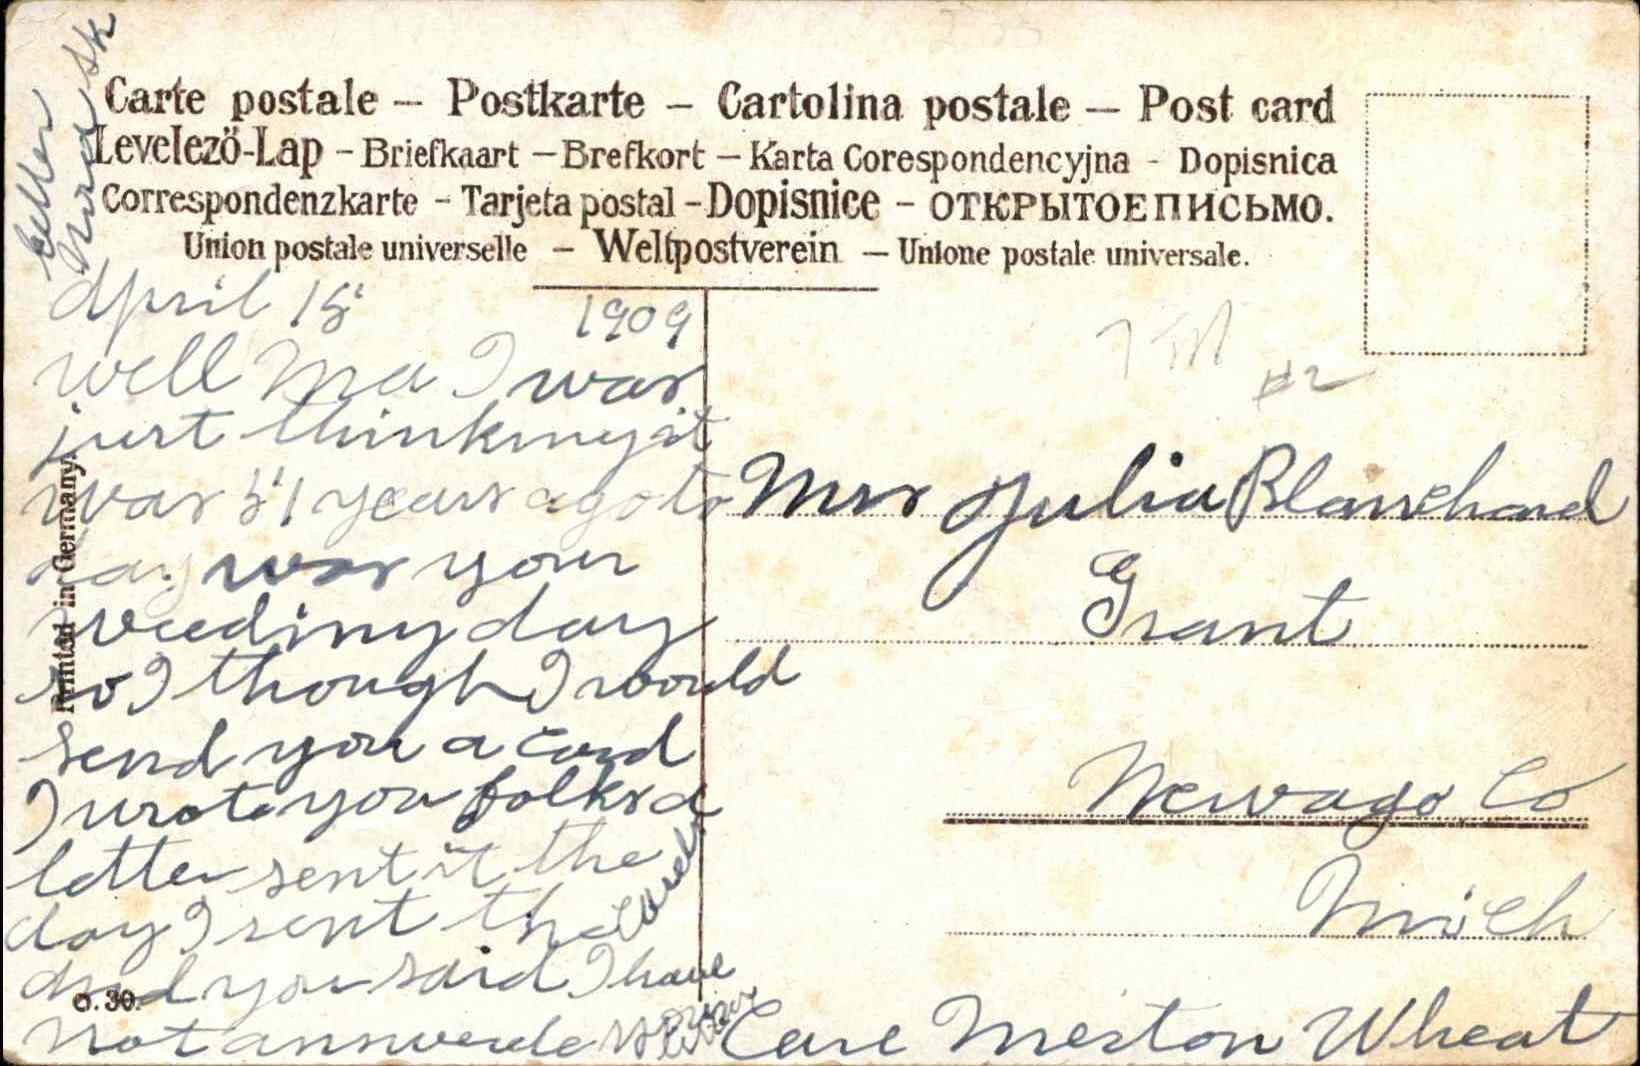 Eller
Nebrask
Carte postale – Postkarte – Cartolina postale – Post card
Levelező-Lap – Briefkaart – Brefkort – Karta Corespondencyjna - Dopisnica
Correspondenzkarte - Tarjeta postal – Dopisnice - ОТКРЫТОЕПИСЬМО.
Union postale universelle – Weltpostverein – Unione postale universale.
April 15 1909
well Ma I was
just thinking it
was 51 years ago to
day was your
weeding day
so I though I would
send you a card
I wrote you folks a
letter sent it the
day I sent the cards
And you said I have
not answerde your letter
Printed in Germany.
O. 30.
#2
Mrs Julia Blanchard
Grant
Newago Co
Mich
Care Merton Wheat